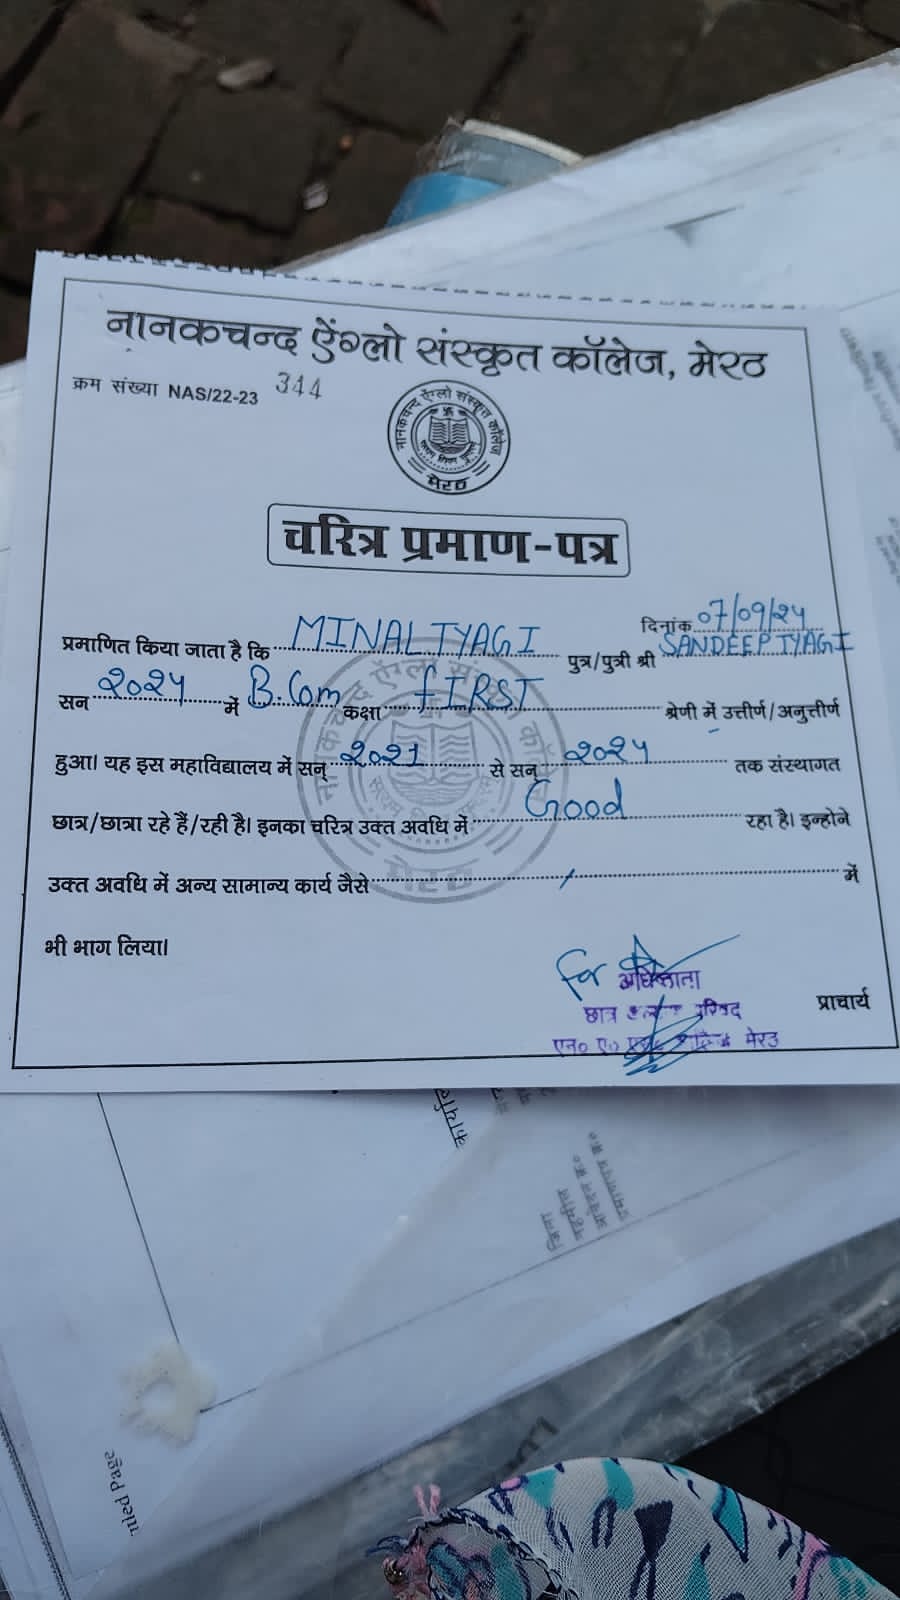 नानकचन्द ऐंग्लो संस्कृत कॉलेज, मेरठ
क्रम संख्या NAS/22-23 344
नानकचन्द ऐंग्लो संस्कृत कॉलेज
मेरठ
चरित्र प्रमाण-पत्र
दिनांक 07/09/24
प्रमाणित किया जाता है कि MINAL TYAGI पुत्र/पुत्री श्री SANDEEP TYAGI
सन 2024 में B.Com कक्षा FIRST श्रेणी में उत्तीर्ण/अनुत्तीर्ण
हुआ। यह इस महाविद्यालय में सन् 2021 से सन् 2024 तक संस्थागत
छात्र/छात्रा रहे हैं/रही है। इनका चरित्र उक्त अवधि में Good रहा है। इन्होने
उक्त अवधि में अन्य सामान्य कार्य जैसे में
भी भाग लिया।
for
अधिष्ठाता
छात्र
प्राचार्य
एन० ए० मेरठ